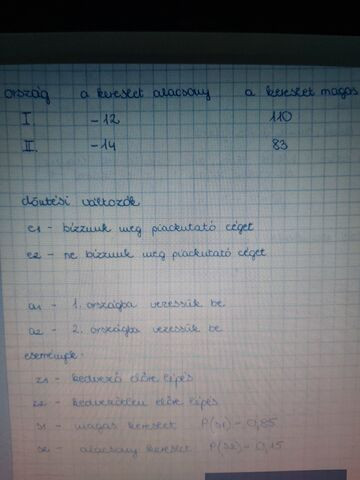 ország a kereslet alacsony a kereslet magas
I. -12 110
II. -14 83
döntési változók
c1 - bízzunk meg piackutató céget
c2 - ne bízzunk meg piackutató céget
a1 - 1. országba vezessük be
a2 - 2. országba vezessük be
események:
z1 - kedvező előre lépés
z2 - kedvezőtlen előre lépés
s1 - magas kereslet P(s1) - 0,85
s2 - alacsony kereslet P(s2) - 0,15